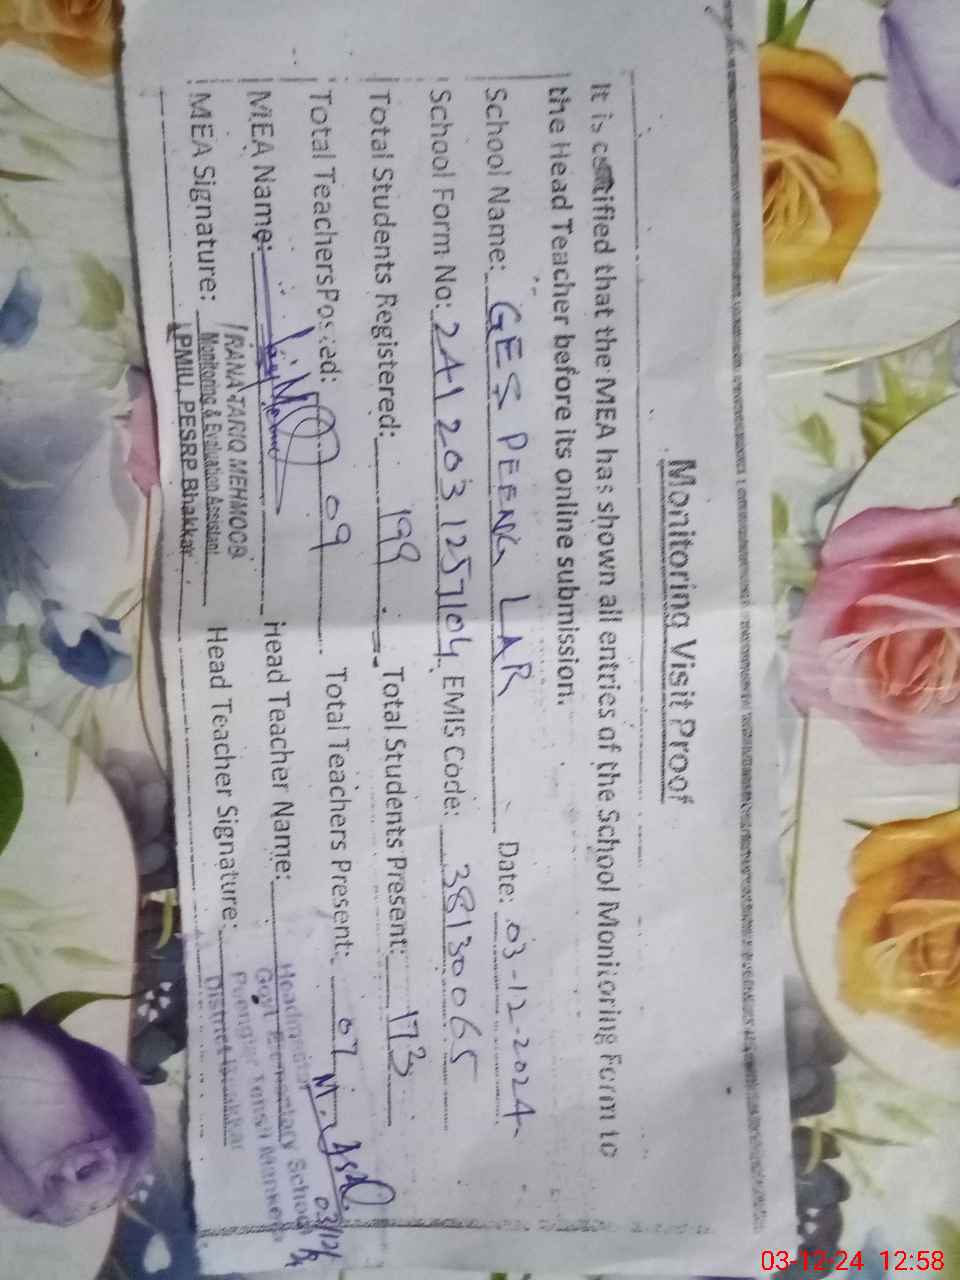 Monitoring Visit Proof
It is certified that the MEA has shown all entries of the School Monitoring Form to
the Head Teacher before its online submission.
School Name: GES PEENG LAR Date: 03-12-2024
School Form No: 2412031257104 EMIS Code: 38130065
Total Students Registered: 199 Total Students Present: 173
Total Teachers Posted: 09 Total Teachers Present: 07
MEA Name: Head Teacher Name:
MEA Signature: Head Teacher Signature:
RANA TARIQ MEHMOOD
Monitoring & Evaluation Assistant
PMIU, PESRP Bhakkar
Headmaster
Govt Elementary School
Peenglar Tehsil Mankera
District Bhakkar
03/12/
03-12-24 12:58